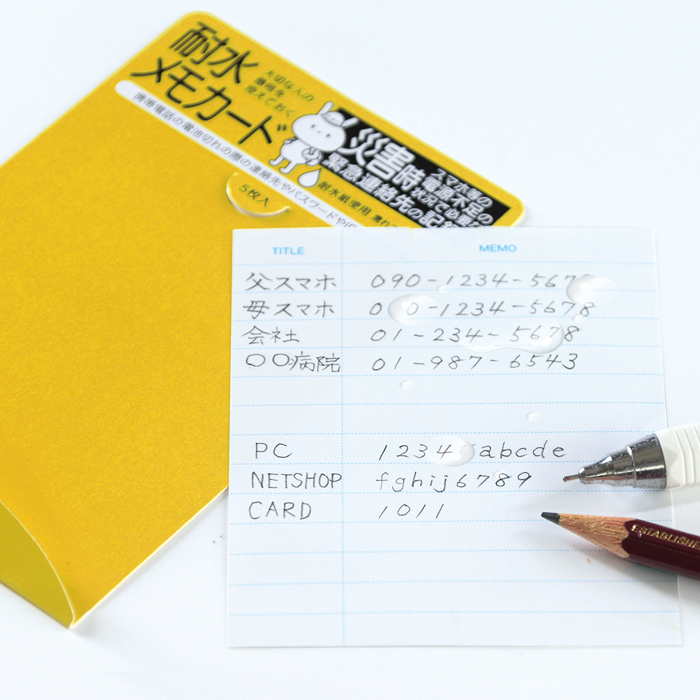 耐水
メモカード
大切な人の
番号を
控えておく
携帯電話の電池切れの際の連絡先やパスワードやID
災害時
緊急連絡先の記
スマホ等の
電源不足の
状況で必要
耐水紙使用 濡れ
5枚入
TITLE MEMO
父スマホ 090-1234-567
母スマホ 0 0-1234-5678
会社 01-234-5678
〇〇病院 01-987-6543
PC 1234 abcde
NETSHOP fghij6789
CARD 1011
ESTABLISHE